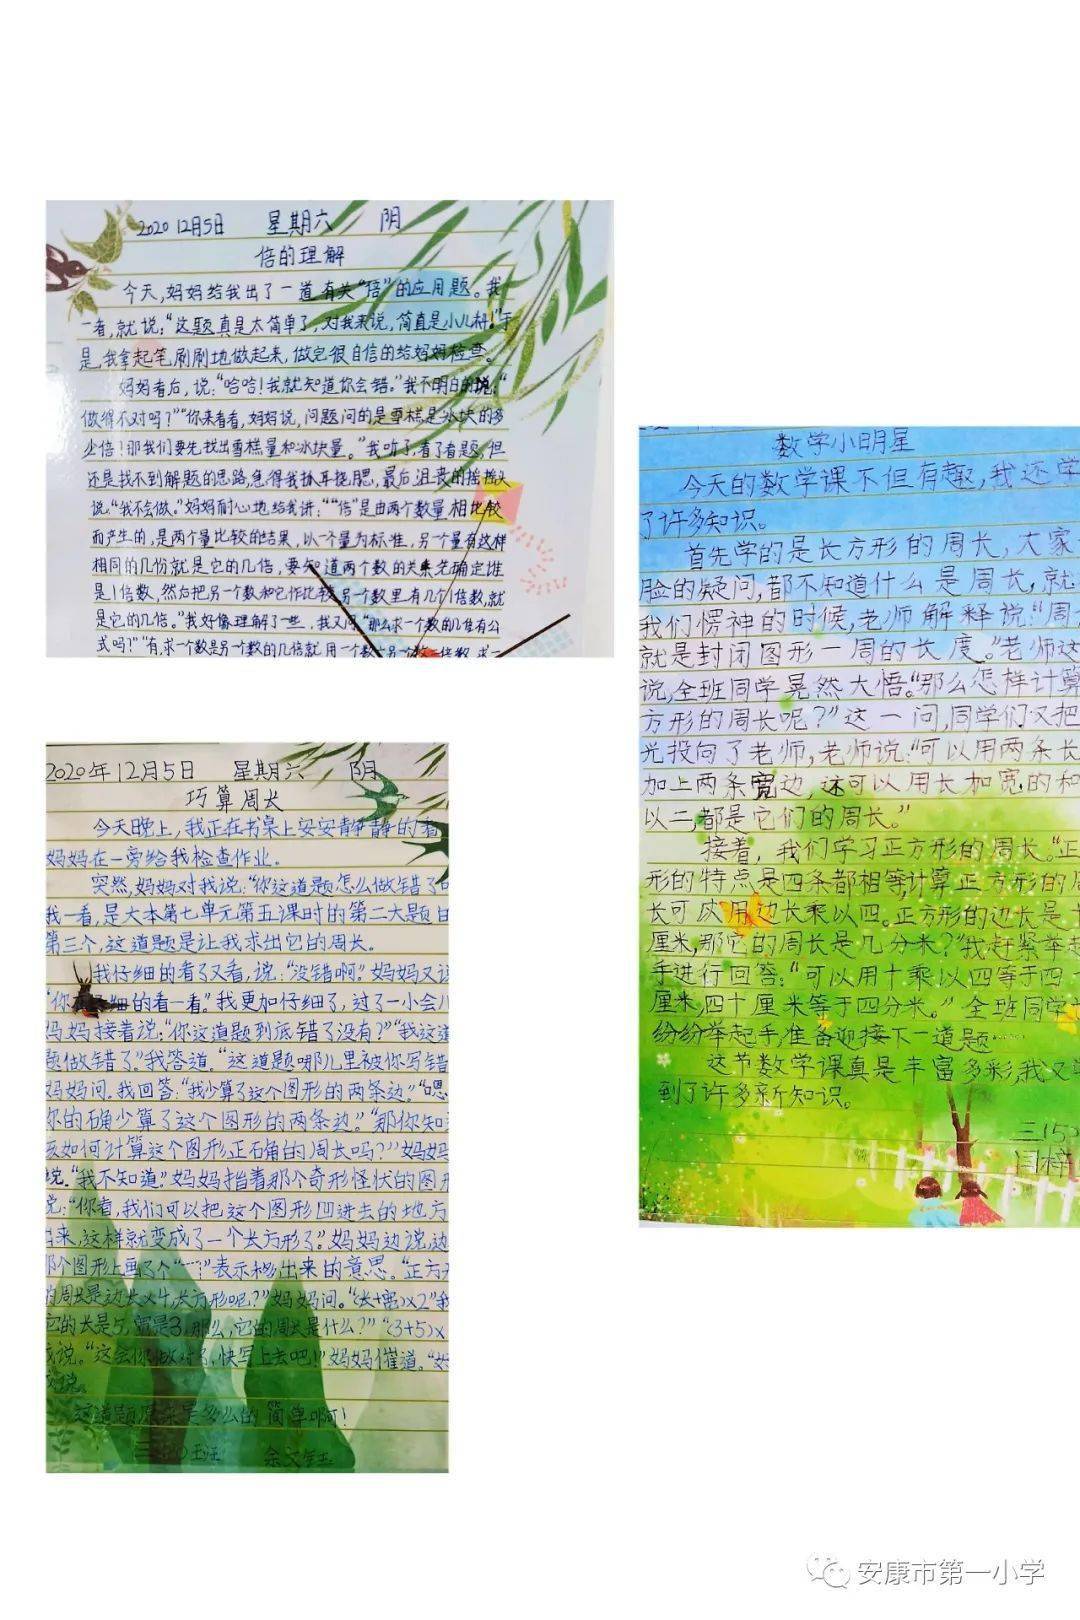 2020 12月5日 星期六 阴
倍的理解
今天,妈妈给我出了一道有关“倍”的应用题。我
一看,就说:“这题真是太简单了,对我来说,简直是小儿科!”于
是,我拿起笔,刷刷地做起来,做完很自信的给妈妈检查。
妈妈看后,说:“哈哈!我就知道你会错。”我不明白的说:“
做得不对吗?”“你来看看,妈妈说,问题问的是雪糕是冰块的多
少倍!那我们要先找出雪糕量和冰块量。”我听了,看了看题,但
还是找不到解题的思路,急得我抓耳挠腮,最后,沮丧的摇摇头
说:“我不会做。”妈妈耐心地给我讲:““倍”是由两个数量相比较
而产生的,是两个量比较的结果,以一个量为标准,另一个量有这样
相同的几份就是它的几倍,要知道两个数的关系,先确定谁
是1倍数,然后把另一个数和它作比较,另一个数里有几个1倍数,就
是它的几倍。”我好像理解了一些,我又问:“那么求一个数的几倍有公
式吗?”“有,求一个数是另一个数的几倍就用一个数÷另一个数=倍数,求一
2020年12月5日 星期六 阴
巧算周长
今天晚上,我正在书桌上安安静静的看
妈妈在一旁给我检查作业。
突然,妈妈对我说:“你这道题怎么做错了
我一看,是大本第七单元第五课时的第二大题
第三个,这道题是让我求出它的周长。
我仔细的看了又看,说:“没错啊。”妈妈又说
“你在仔细的看一看。”我更加仔细了,过了一小会儿
妈妈接着说:“你这道题到底错了没有?”“我这道
题做错了。”我答道。“这道题哪儿里被你写错
妈妈问。我回答:“我少算了这个图形的两条边。”“嗯
你的确少算了这个图形的两条边。”“那你知
该如何计算这个图形正石角的周长吗?”妈妈
说。“我不知道。”妈妈指着那个奇形怪状的图形
说:“你看,我们可以把这个图形凹进去的地方
出来,这样就变成了一个长方形了。”妈妈边说,边
那个图形上画了个“”表示移出来的意思。“正方形
的周长是边长×4,长方形呢?”妈妈问。“(长+宽)×2”我
它的长是5,宽是3,那么,它的周长是什么?”“(3+5)×
我说。“这会你做对了,快写上去吧!”妈妈催道。“好
我说。
这道题原来是多么的简单啊!
三 班 余文
数学小明星
今天的数学课不但有趣,我还学
了许多知识。
首先学的是长方形的周长,大家
脸的疑问,都不知道什么是周长,就
我们愣神的时候,老师解释说:“周
就是封闭图形一周的长度。”老师这
说,全班同学晃然大悟。“那么怎样计算
方形的周长呢?”这一问,同学们又把
光投向了老师,老师说:“可以用两条长
加上两条宽边,这可以用长加宽的和
以二,都是它们的周长。”
接着,我们学习正方形的周长。“正
形的特点是四条都相等,计算正方形的周
长可以用边长乘以四。正方形的边长是
厘米,那它的周长是几分米?”我赶紧举起
手进行回答:“可以用十乘以四等于四
厘米,四十厘米等于四分米。”全班同学
纷纷举起手,准备迎接下一道题……
这节数学课真是丰富多彩,我又学
到了许多新知识。
三(5)
闫梓
安康市第一小学